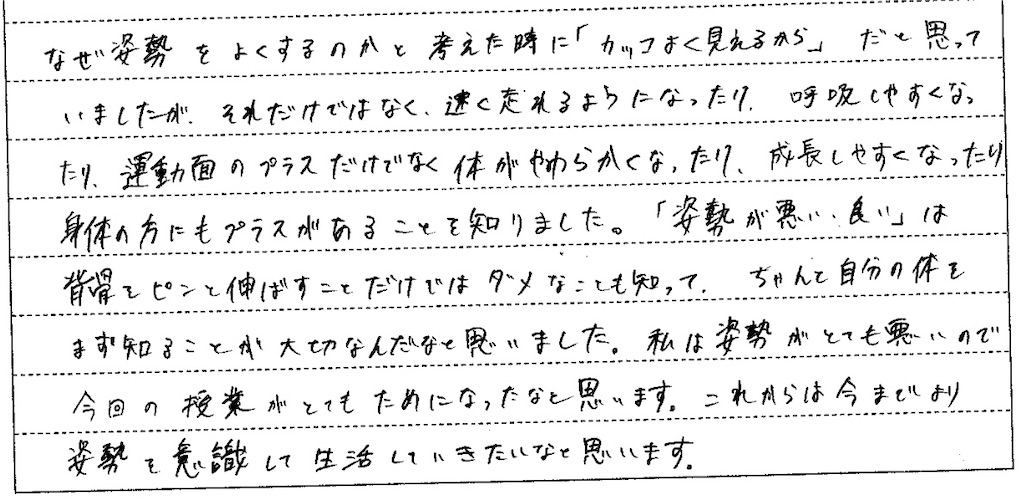 なぜ姿勢をよくするのかと考えた時に「カッコよく見えるから」だと思って
いましたが、それだけではなく、速く走れるようになったり、呼吸しやすくなっ
たり、運動面のプラスだけでなく体がやわらかくなったり、成長しやすくなったり
身体の方にもプラスがあることを知りました。「姿勢が悪い、良い」は
背骨をピンと伸ばすことだけではダメなことも知って、ちゃんと自分の体を
まず知ることが大切なんだなと思いました。私は姿勢がとても悪いので
今回の授業がとてもためになったなと思います。これからは今までより
姿勢を意識して生活していきたいなと思います。